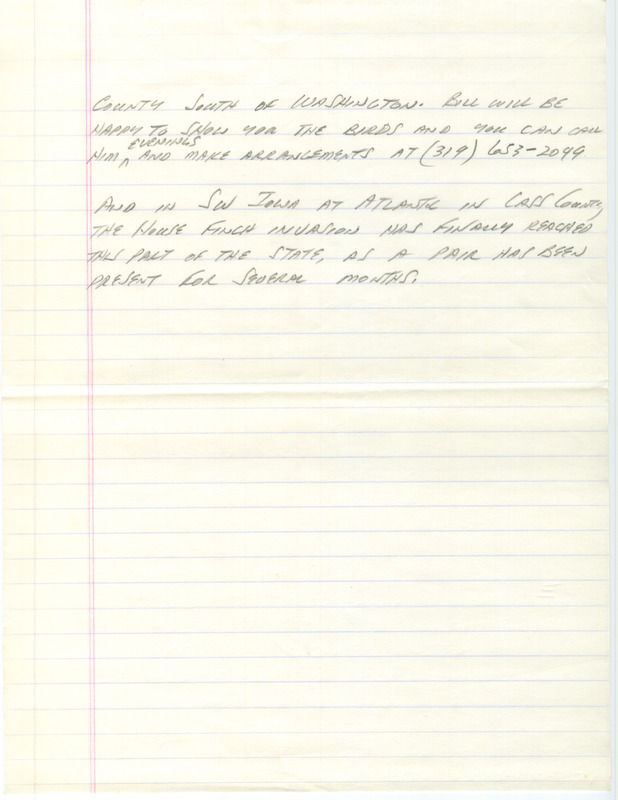 COUNTY SOUTH OF WASHINGTON. BILL WILL BE
HAPPY TO SHOW YOU THE BIRDS AND YOU CAN CALL
EVENINGS
HIM ^ AND MAKE ARRANGEMENTS AT (319) 653-2099
AND IN SW IOWA AT ATLANTIC IN CASS COUNTY,
THE HOUSE FINCH INVASION HAS FINALLY REACHED
THIS PART OF THE STATE, AS A PAIR HAS BEEN
PRESENT FOR SEVERAL MONTHS.